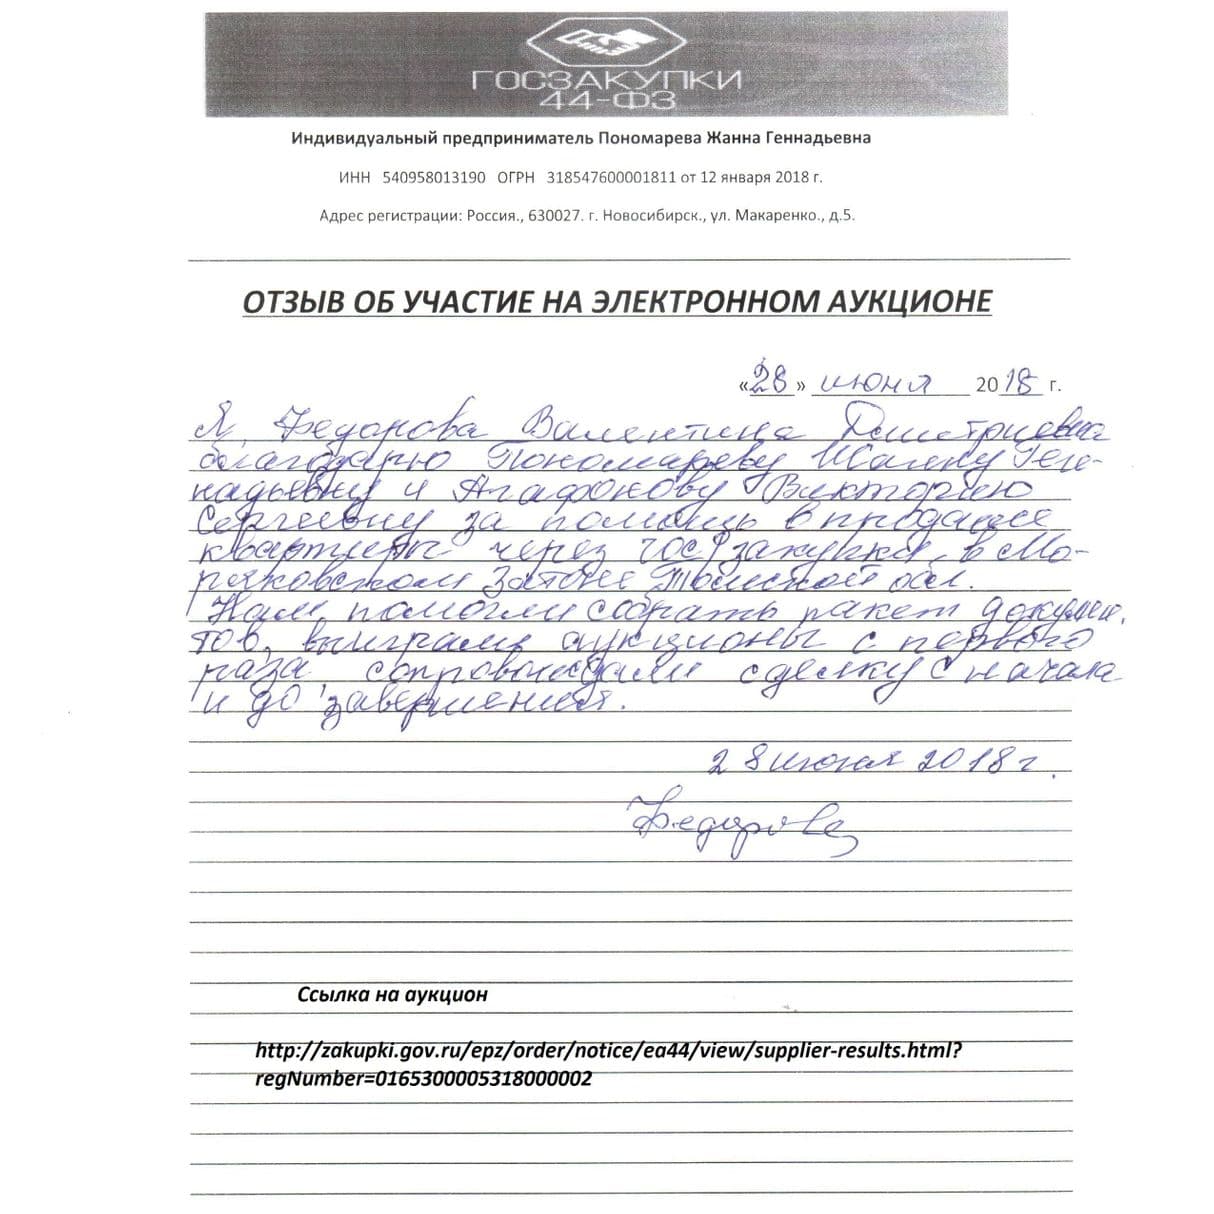 ГОСЗАКУПКИ
44-ФЗ
Индивидуальный предприниматель Пономарева Жанна Геннадьевна
ИНН 540958013190 ОГРН 318547600001811 от 12 января 2018 г.
Адрес регистрации: Россия., 630027. г. Новосибирск., ул. Макаренко., д.5.
ОТЗЫВ ОБ УЧАСТИЕ НА ЭЛЕКТРОННОМ АУКЦИОНЕ
«28» июня 2018 г.
Я, Федорова Валентина Дмитриевна
благодарю Пономареву Жанну Ген-
надьевну и Агафонову Викторию
Сергеевну за помощь в продаже
квартиры через гос закупки, в Мо-
ряковском Затоне Томской обл.
Нам помогли собрать пакет докумен.
тов, выиграли аукционы с первого
раза сопровождали сделку с начала
и до завершения.
28 июня 2018 г.
Федорова
Ссылка на аукцион
http://zakupki.gov.ru/epz/order/notice/ea44/view/supplier-results.html?
regNumber=0165300005318000002